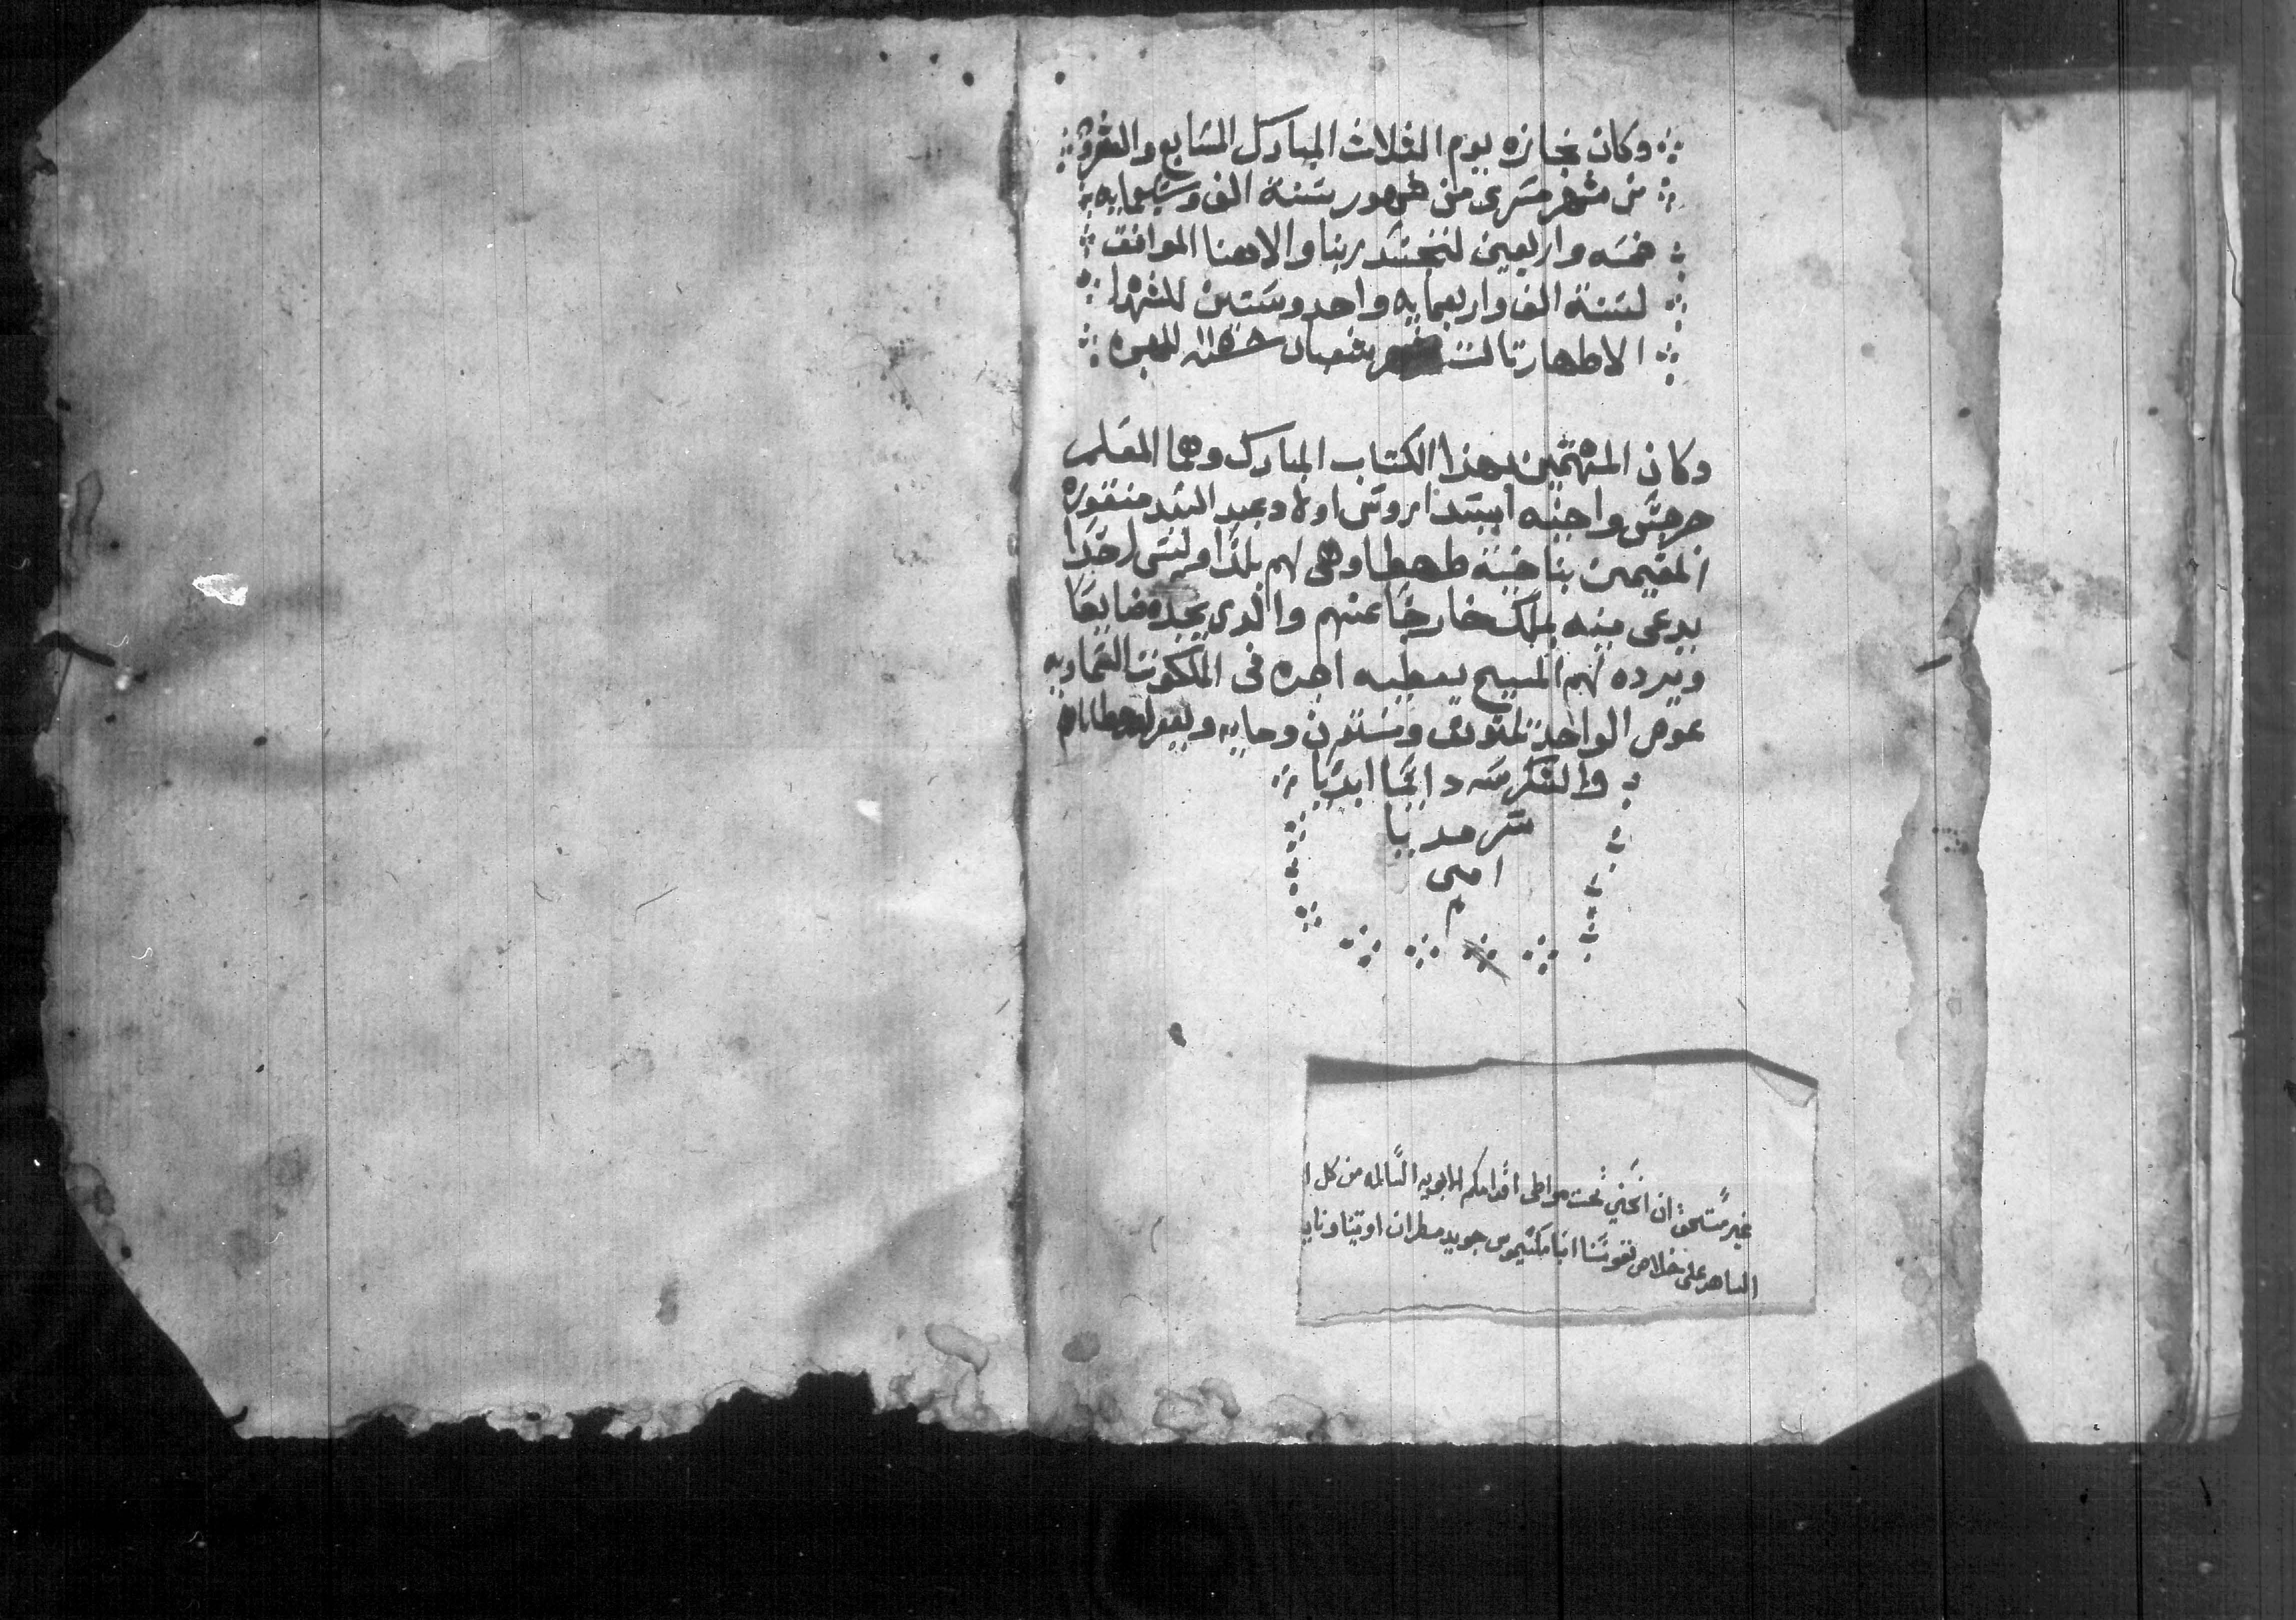 وكان نجازه يوم الثلاث المبارك السابع والعشرون
من شهر مسرى من شهور سنة الف وسبعمايه
خمسه واربعين لتجسد ربنا والاهنا الموافق
لسنة الف واربعمايه واحد وستين للشهدا
الاطهار تالت شعبان للهجره
وكان المهتمين بهذا الكتاب المبارك وهما المعلم
جرجس واخيه اولاد عبد السيد منقوره
المقيمين بناحية طهطا وهى لهم ملكا وليس لاحدا
يدعى منه بملك خارجا عنهم والدى يجده ضايعا
ويرده لهم المسيح يعطيه اجره فى الملكوت السماويه
عوض الواحد تلتون وستون ومايه ويغفر لهم خطاياهم
والشكر لله دايما ابديا
سرمديا
امين
غير مستحق ان انحني تحت مواطى اقدامكم الابويه السالمه من كل ا
الساهر على خلاص نفوسنا انبا مكسيموس جويد مطران اوتينا وناي